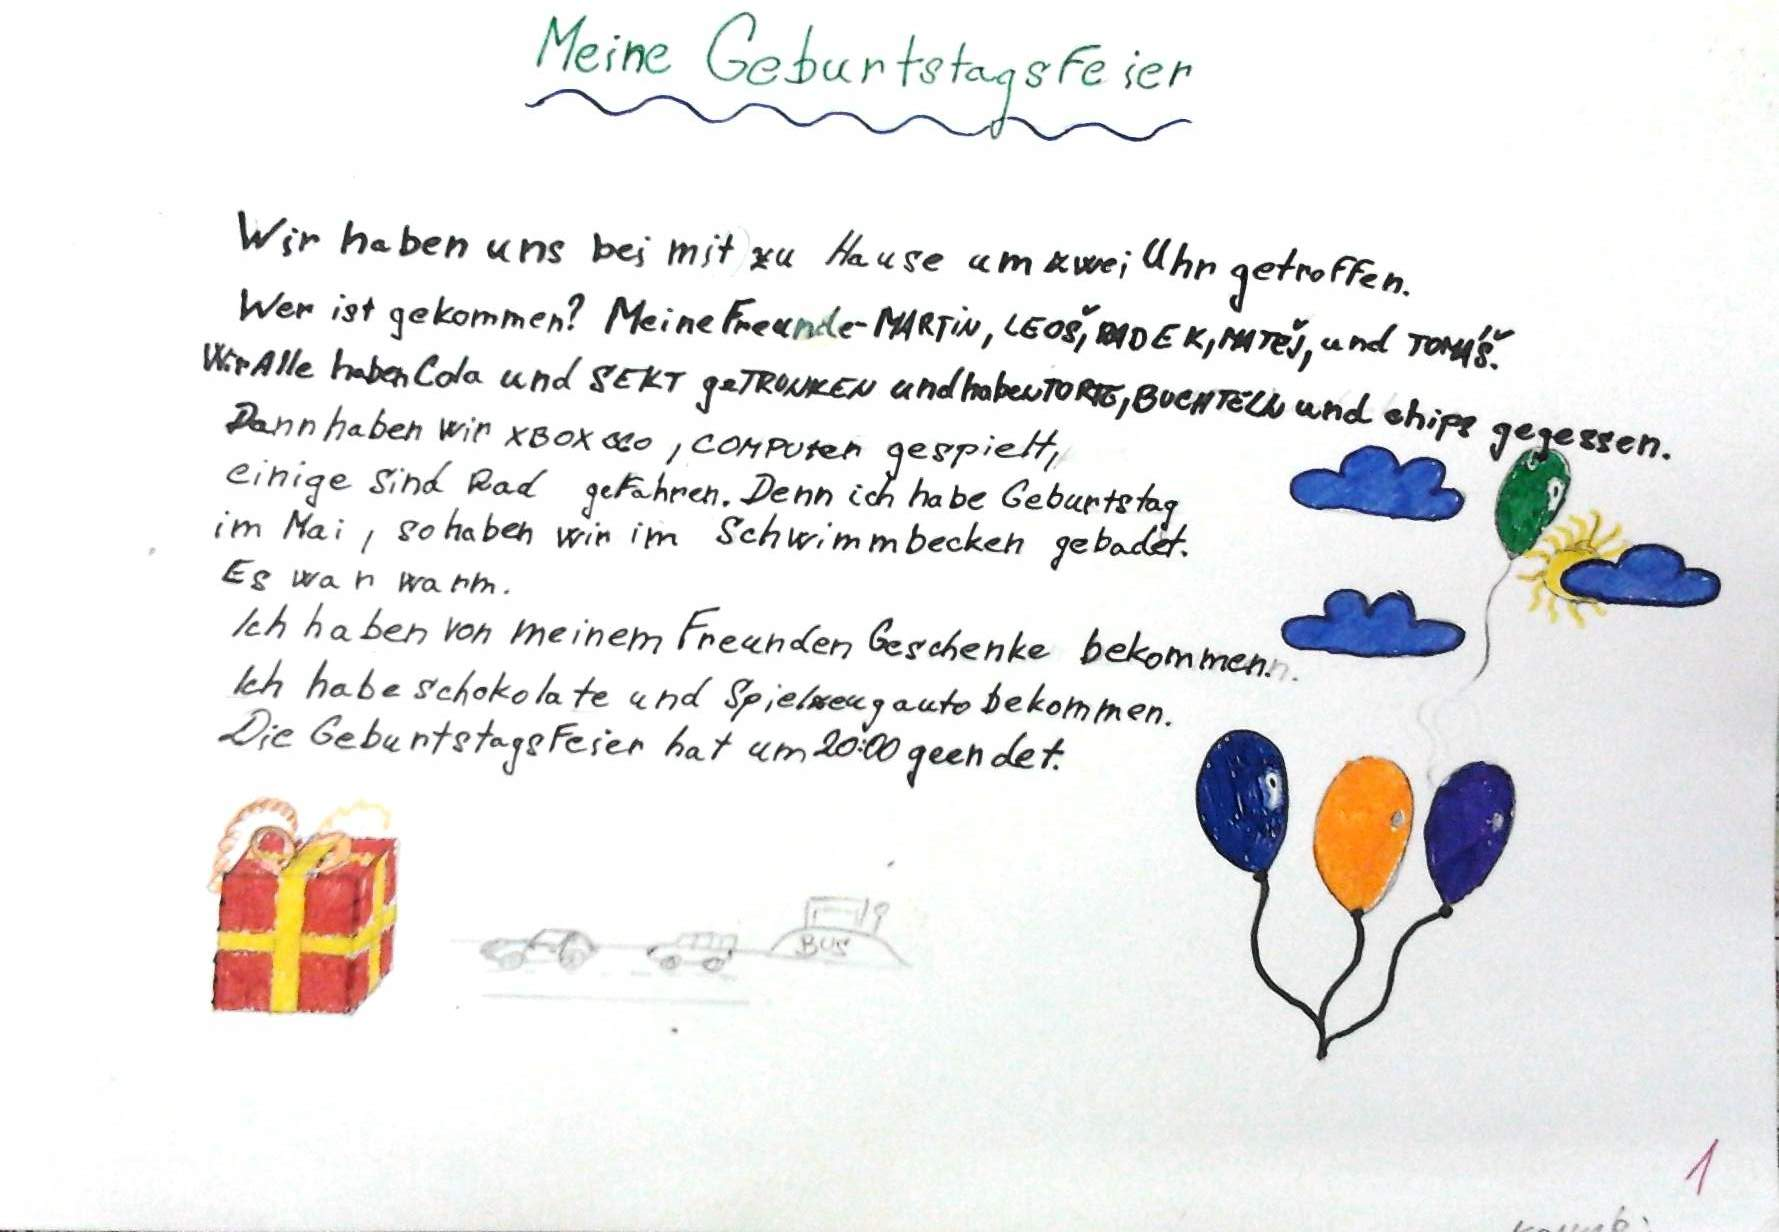 Meine Geburtstagsfeier
Wir haben uns bei mit zu Hause um zwei Uhr getroffen.
Wer ist gekommen? Meine Freunde - MARTIN, LEOŠ, RADEK, MATEJ, und TOMÁŠ.
Wir Alle haben Cola und SEKT geTRUNKEN und haben TORTE, BUCHTELN und chips gegessen.
Dann haben wir XBOX 360, COMPUter gespielt,
einige Sind Rad gefahren. Denn ich habe Geburtstag
im Mai, so haben wir im Schwimmbecken gebadet.
Es war warm.
Ich haben von meinem Freunden Geschenke bekommen.
Ich habe schokolate und Spielzeugauto bekommen.
Die Geburtstagsfeier hat um 20:00 geendet.
BUS
1